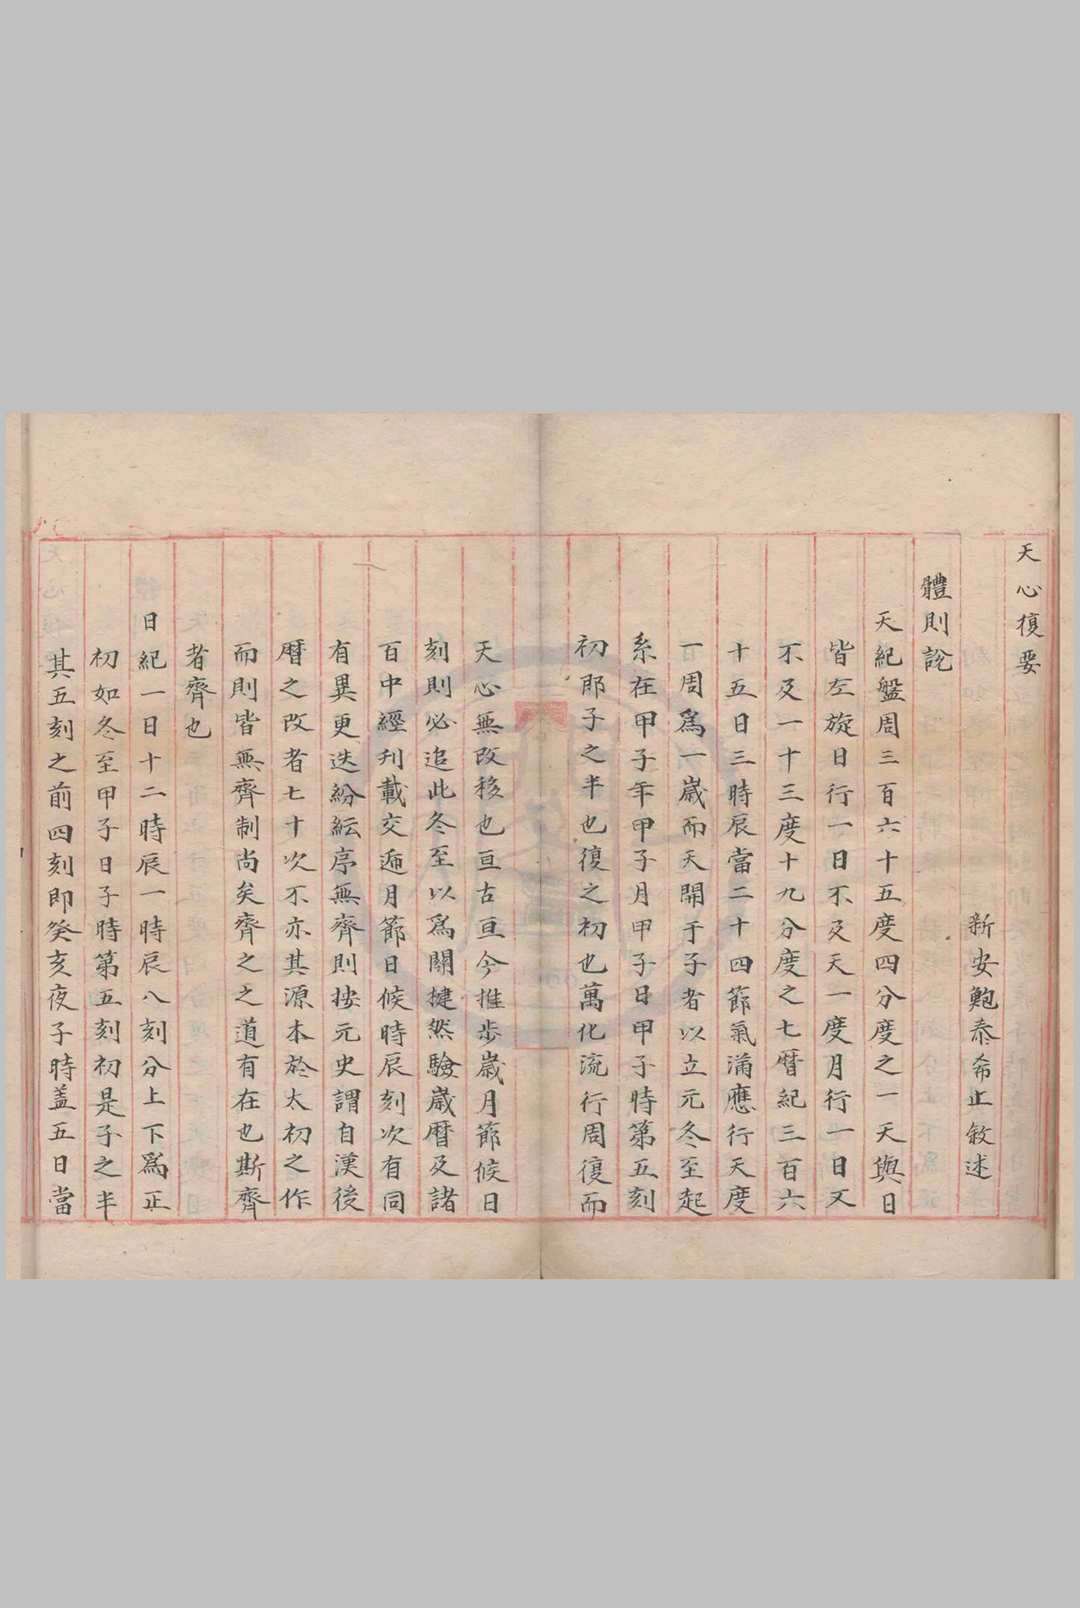 天心復要
新安鮑泰希止敘述
體則說
天紀盤周三百六十五度四分度之一天與日
皆左旋日行一日不及天一度月行一日又
不及一十三度十九分度之七曆紀三百六
十五日三時辰當二十四節氣滿應行天度
一周爲一歲而天開于子者以立元冬至起
系在甲子年甲子月甲子日甲子時第五刻
初即子之半也復之初也萬化流行周復而
天心無改移也亘古亘今推步歲月節候日
刻則必追此冬至以爲關揵然驗歲曆及諸
百中經刊載交遁月節日候時辰刻次有同
有異更迭紛紜序無齊則按元史謂自漢後
曆之改者七十次不亦其源本於太初之作
而則皆無齊制尚矣齊之之道有在也斯齊
者齊也
日紀一日十二時辰一時辰八刻分上下爲正
初如冬至甲子日子時第五刻初是子之半
其五刻之前四刻即癸亥夜子時蓋五日當